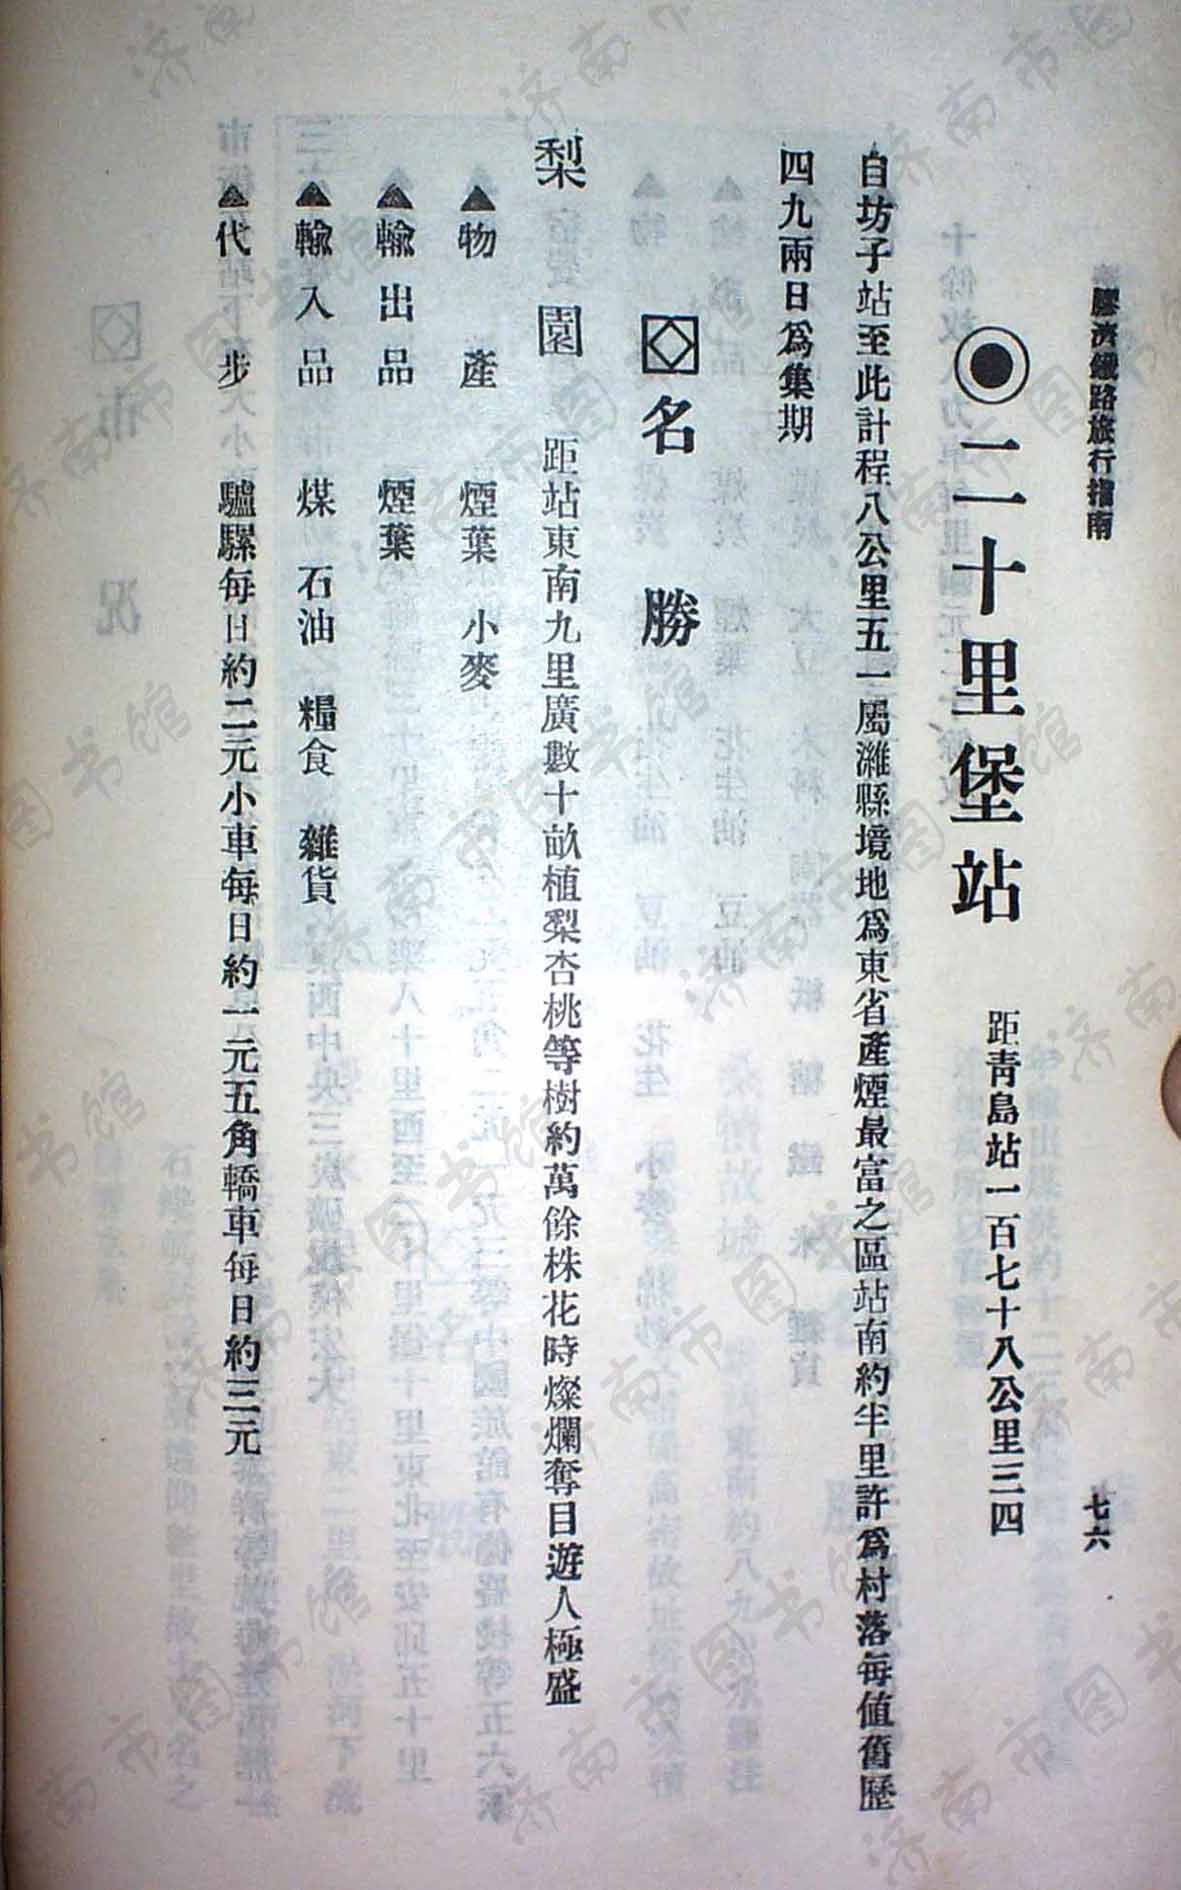 膠濟鐵路旅行指南
七六
◉二十里堡站
距靑島站一百七十八公里三四
自坊子站至此計程八公里五一屬濰縣境地爲東省產煙最富之區站南約半里許爲村落每值舊歷
四九兩日爲集期
名勝
梨園 距站東南九里廣數十畝植梨杏桃等樹約萬餘株花時燦爛奪目遊人極盛
▲物產 煙葉 小麥
▲輸出品 煙葉
▲輸入品 煤 石油 糧食 雜貨
▲代步 驢騾每日約二元小車每日約一元五角轎車每日約三元
济南市图书馆